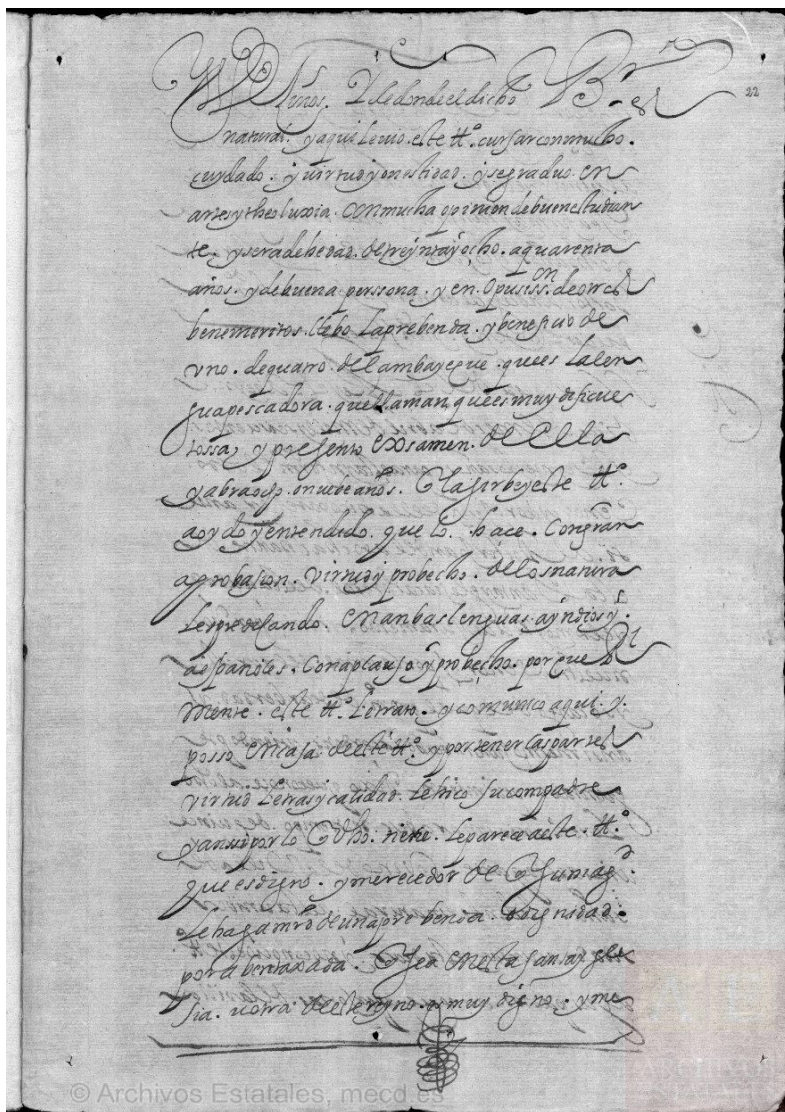 años. Y de donde el dicho Br es
22
natural. y aqui le uio. este tt.o cursar con mucho.
cuydado. y uirtud y onestidad. y se graduo. en
artes y theoluxia. con mucha opinion de buen estudian
te. y sera de hedad. de treynta y ocho. a quarenta
años. y de buena perssona. y en opusiss.on de otros
benemeritos. llebo la prebenda. y beneficio de
vno. de quatro. de llambayeque. que es la len
gua pescadora. que llaman, que es muy dificul
tossa, y presento exsamen. de Ella
y abra ocho. o nuebe años. Que la sirbe y este tt.o
a oydo y entendido. que lo. hace. Con gran
aprobasion. virtud y probecho. de los natura
les predicando. en anbas lenguas. a yndios y.
a españoles. con aplauso y probecho. por que
mente. este tt.o le trato. y comunico aqui. y.
posso en casa de este tt.o y por tener las partes
virtud letras y calidad. le hico su compadre
y ansi por lo q dho. tiene. le parece a este. tt.o
que es digno. y merecedor de q Su magd
le haga mrd de una prebenda. o dignidad.
por abentaxada. q sea en esta santa ygle
sia. u otra. de este reyno. y muy digno. y me
© Archivos Estatales, mecd.es